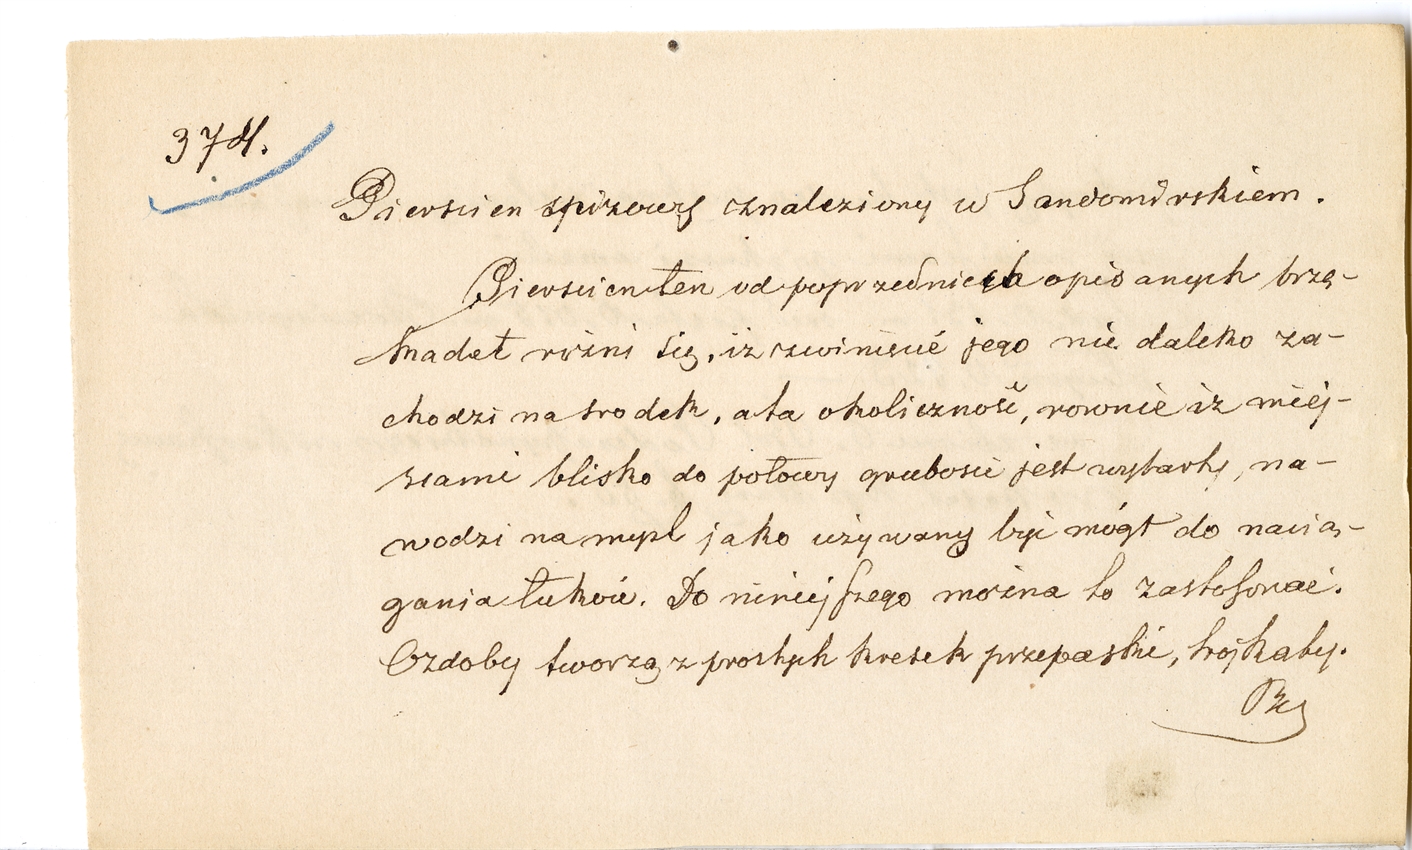 374.
Pierscien spiżowy znaleziony w Sandomirskiem.
Pierscien ten od poprzednich opisanych brzą-
kadeł rożni się, iż zwinięcié jego nie daleko za-
chodzi na srodek, a ta okoliczność, rownie iż miéj-
scami blisko do połowy grubosci jest wytarty, na-
wodzi na mysl jako używany być mógł do nacią-
gania łuków. Do niniejszego można to zastosować.
Ozdoby tworzą z prostych kresek przepaski, trójkąty.